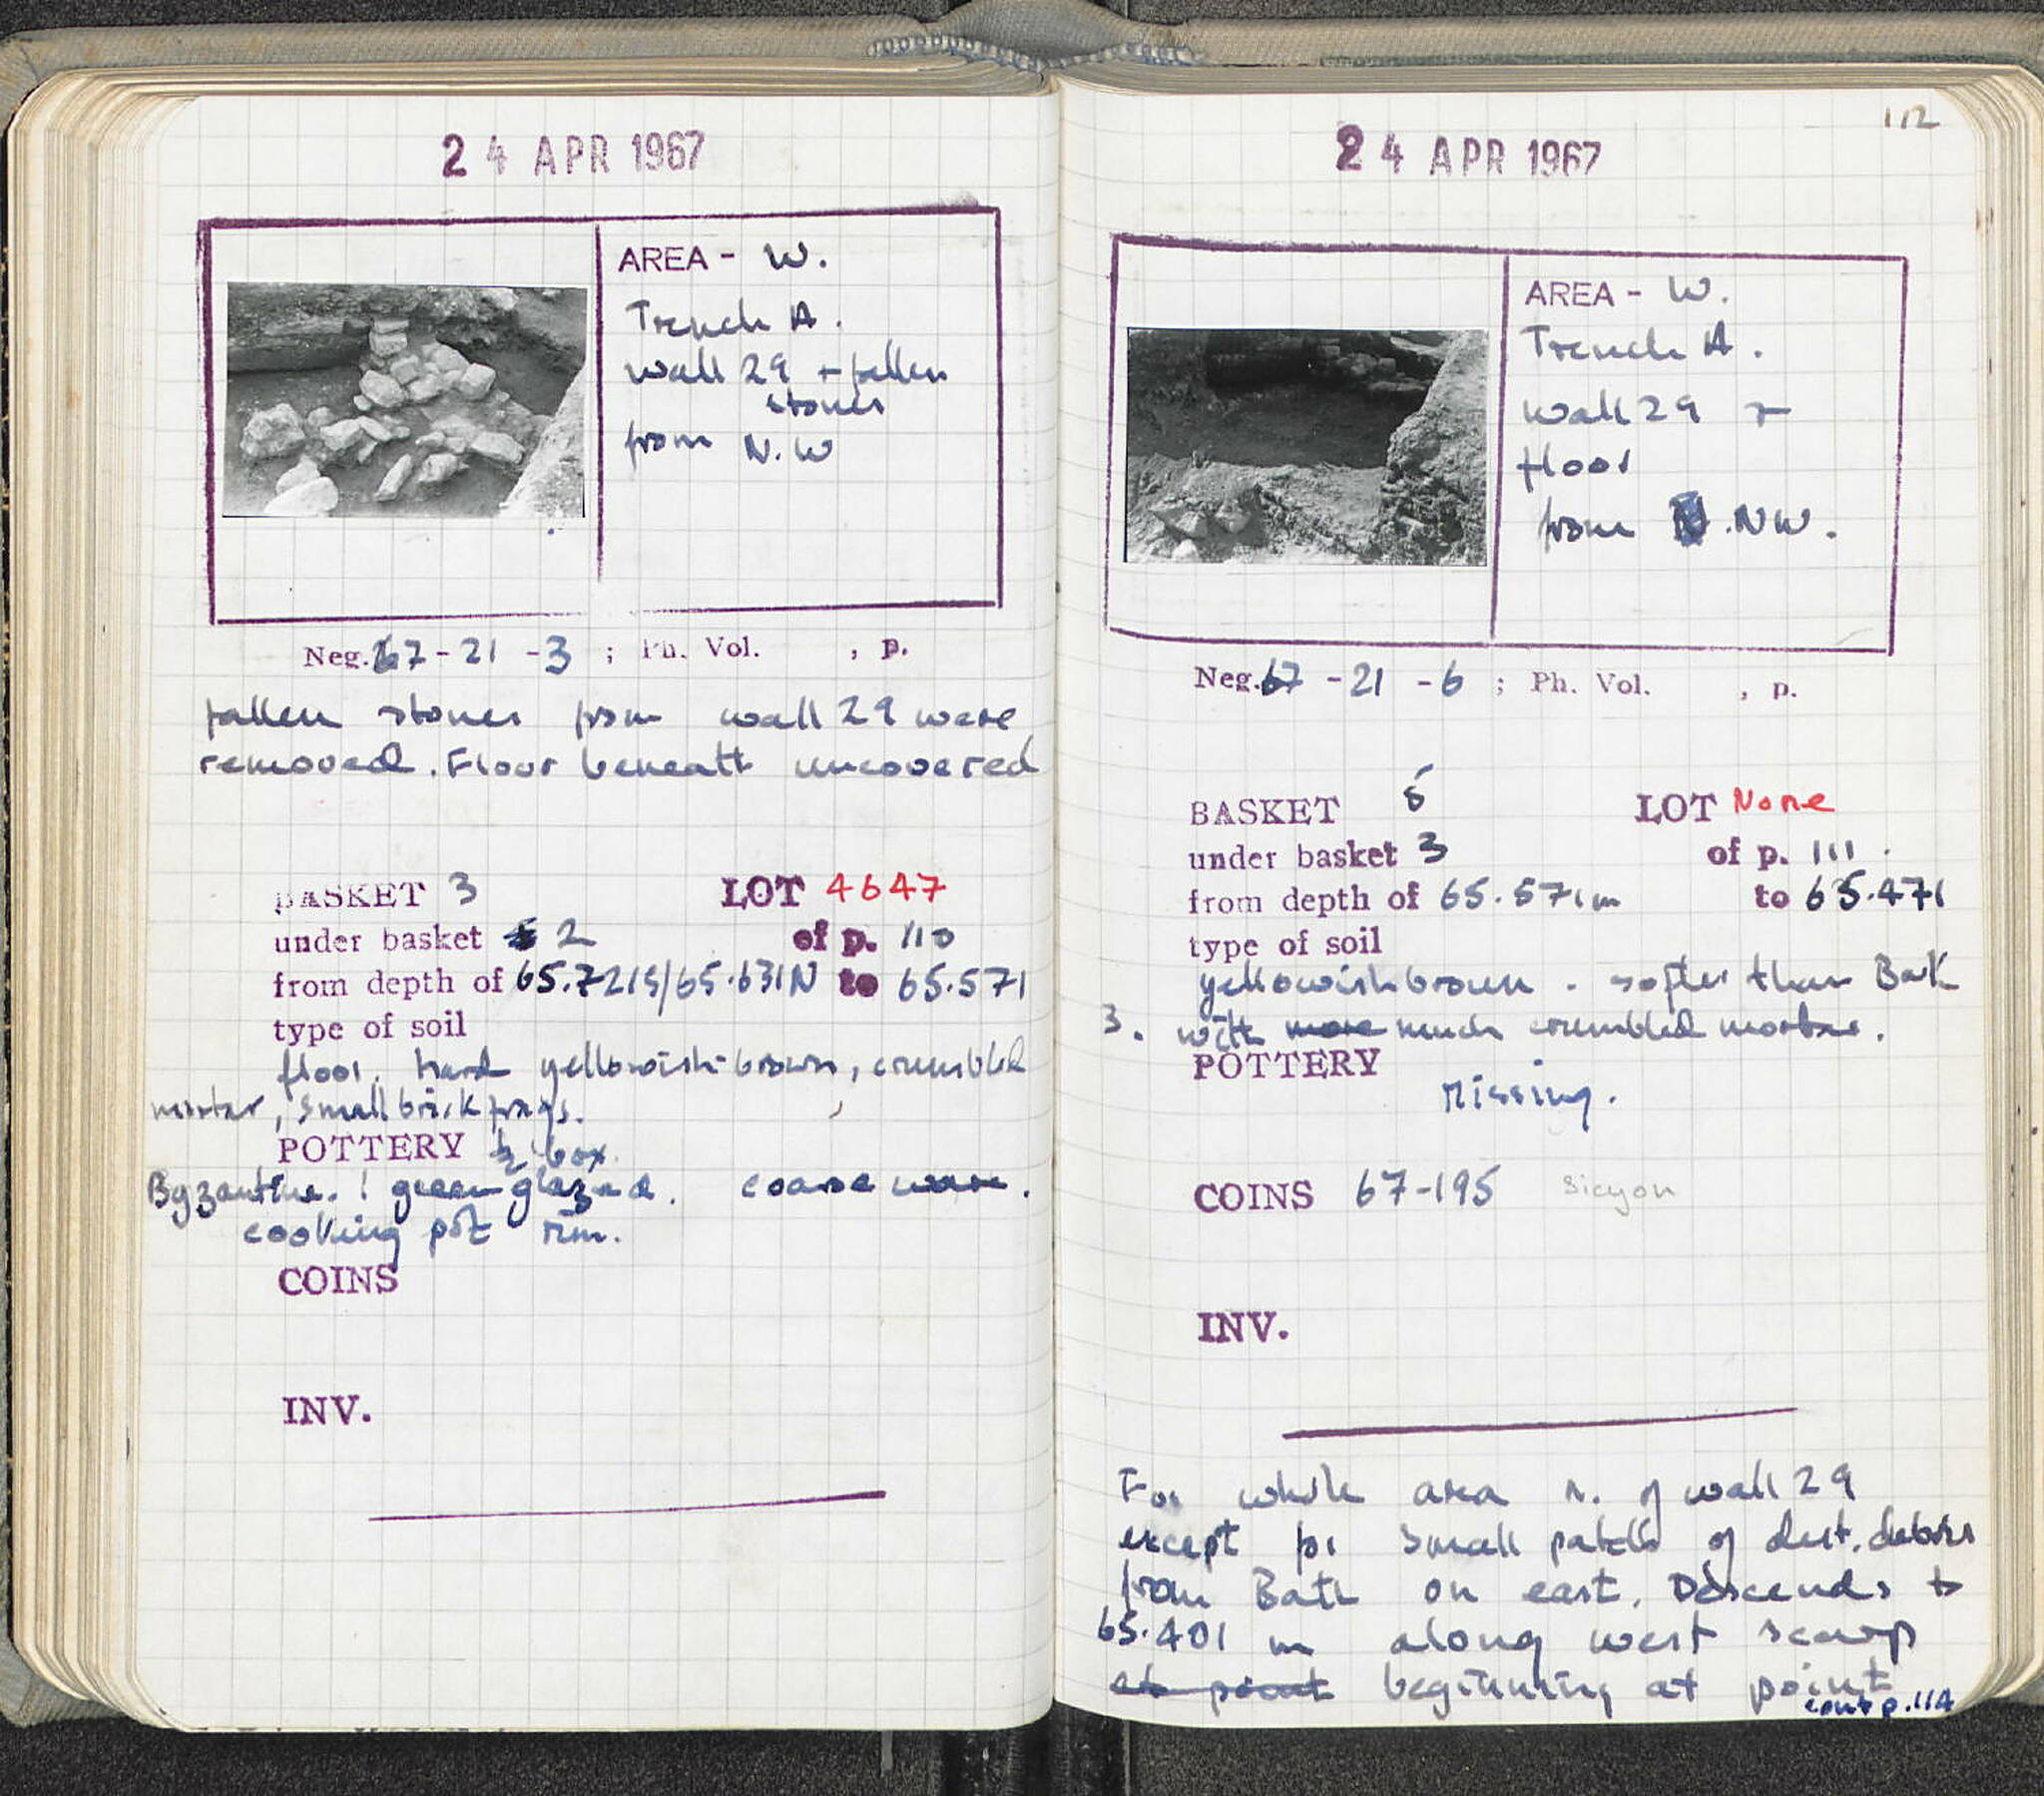 24 APR 1967
AREA - W.
Trench A.
wall 29 + fallen
stones
from N.W
Neg. 67-21-3 ; Ph. Vol. , p.
fallen stones from wall 29 were
removed. Floor beneath uncovered
BASKET 3 LOT 4647
under basket 2 of p. 110
from depth of 65.721S/65.631N to 65.571
type of soil
floor. hard yellowish brown, crumbled
mortar, small brick frags.
POTTERY ½ box.
Byzantine. 1 green glazed. coarse ware.
cooking pot rim.
COINS
INV.
112
24 APR 1967
AREA - W.
Trench A.
Wall 29 +
floor
from NW.
Neg. 67-21-6 ; Ph. Vol. , p.
BASKET 5 LOT None
under basket 3 of p. 111.
from depth of 65.571m to 65.471
type of soil
yellowish brown. softer than Bask
3. with more much crumbled mortar.
POTTERY
Missing.
COINS 67-195 Sicyon
INV.
For whole area N. of wall 29
except for small patch of dest. debris
from Bath on east. Descends to
65.401 m along west scarp
at point beginning at point
cont p. 114